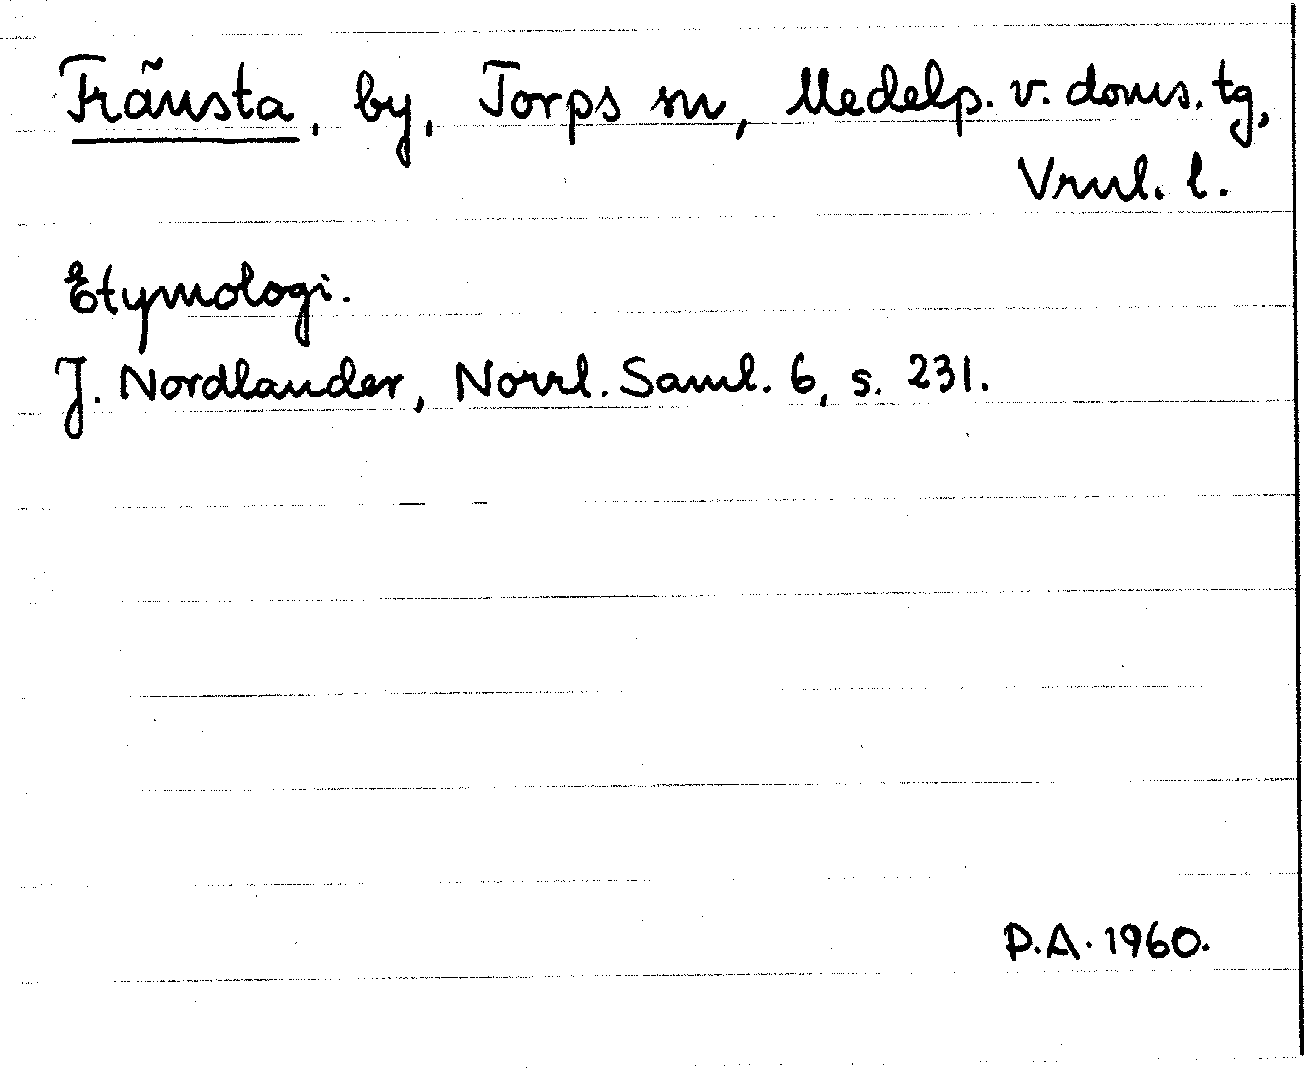 Fränsta, by, Torps sn, Medelp. v. doms. tg,
Vrnl. l.
Etymologi.
J. Nordlander, Norrl. Saml. 6, s. 231.
P.A. 1960.